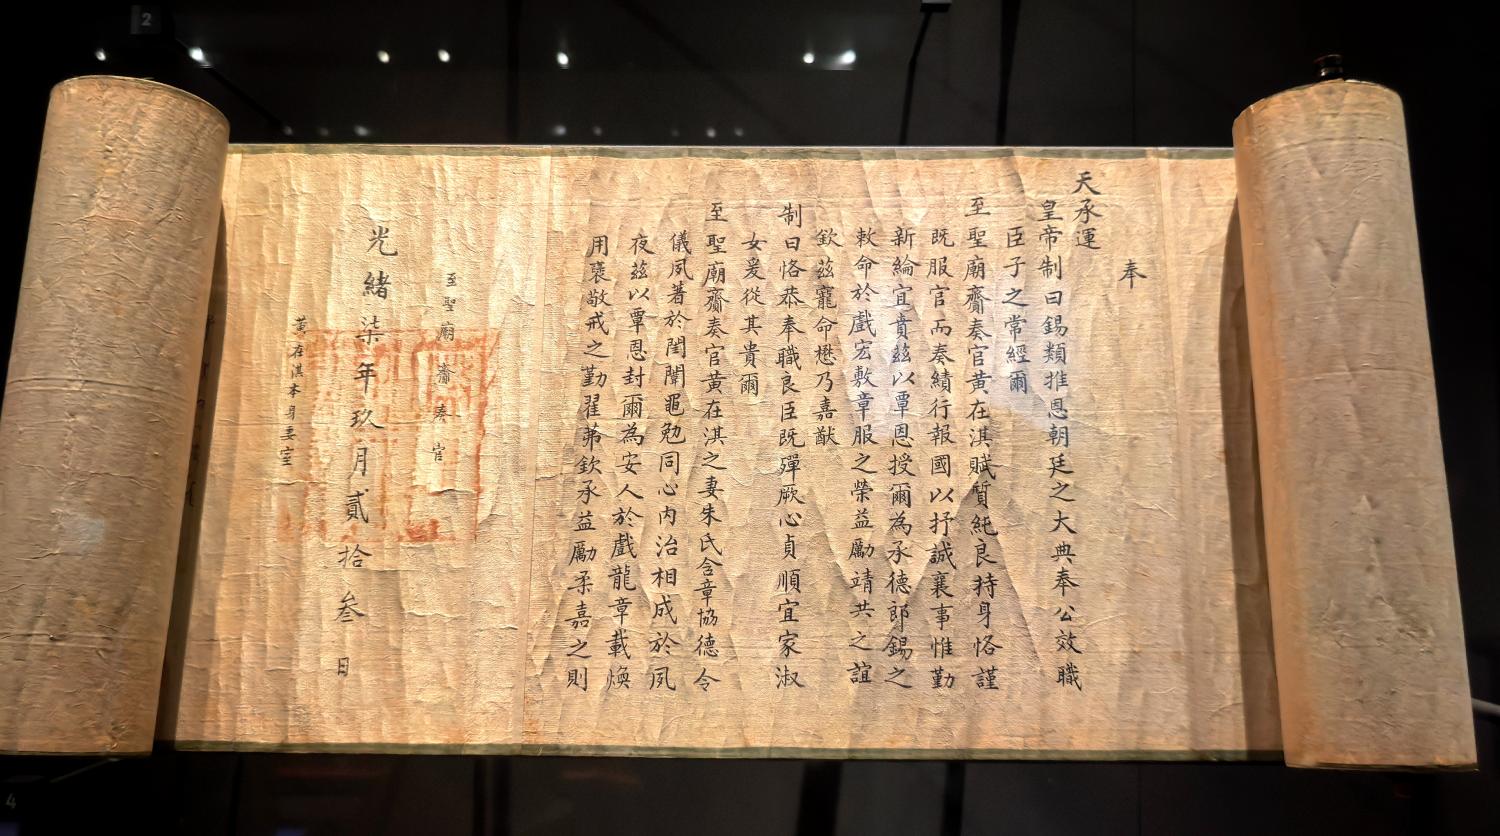 奉
天承運
皇帝制曰錫類推恩朝廷之大典奉公效職
臣子之常經爾
至聖廟齎奏官黃在淇賦質純良持身恪謹
既服官而奏績行報國以抒誠襄事惟勤
新綸宜賁茲以覃恩授爾為承德郎錫之
敕命於戲宏敷章服之榮益勵靖共之誼
欽茲寵命懋乃嘉猷
制曰恪恭奉職良臣既殫厥心貞順宜家淑
女爰從其貴爾
至聖廟齎奏官黃在淇之妻朱氏含章協德令
儀夙著於閨闈黽勉同心內治相成於夙
夜茲以覃恩封爾為安人於戲龍章載煥
用褒敬戒之勤翟茀欽承益勵柔嘉之則
至聖廟齎奏官
光緒柒年玖月貳拾叁日
黃在淇本身妻室
2
4